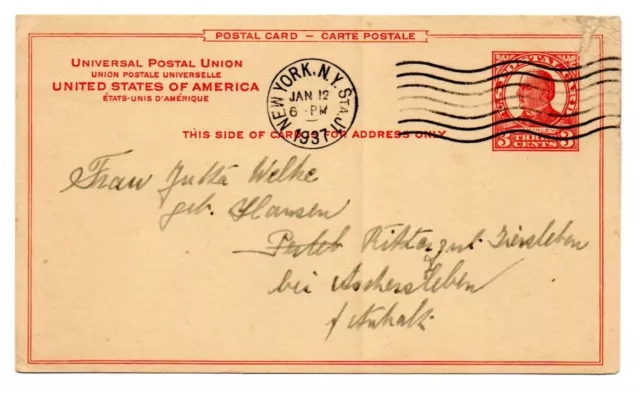 POSTAL CARD – CARTE POSTALE
UNIVERSAL POSTAL UNION
UNION POSTALE UNIVERSELLE
UNITED STATES OF AMERICA
ÉTATS-UNIS D'AMÉRIQUE
NEW YORK, N.Y. STA. J
JAN 12
6 PM
1937
THIS SIDE OF CARD IS FOR ADDRESS ONLY
3 THREE CENTS 3
Frau Jutta Welke
geb. Hansen
Rittergut Ziersleben
bei Aschersleben
/ Anhalt